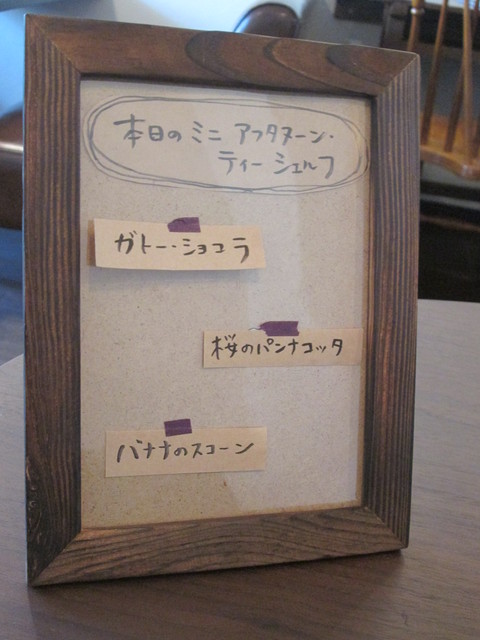 本日のミニ アフタヌーン・
ティーシェルフ
ガトー・ショコラ
桜のパンナコッタ
バナナのスコーン